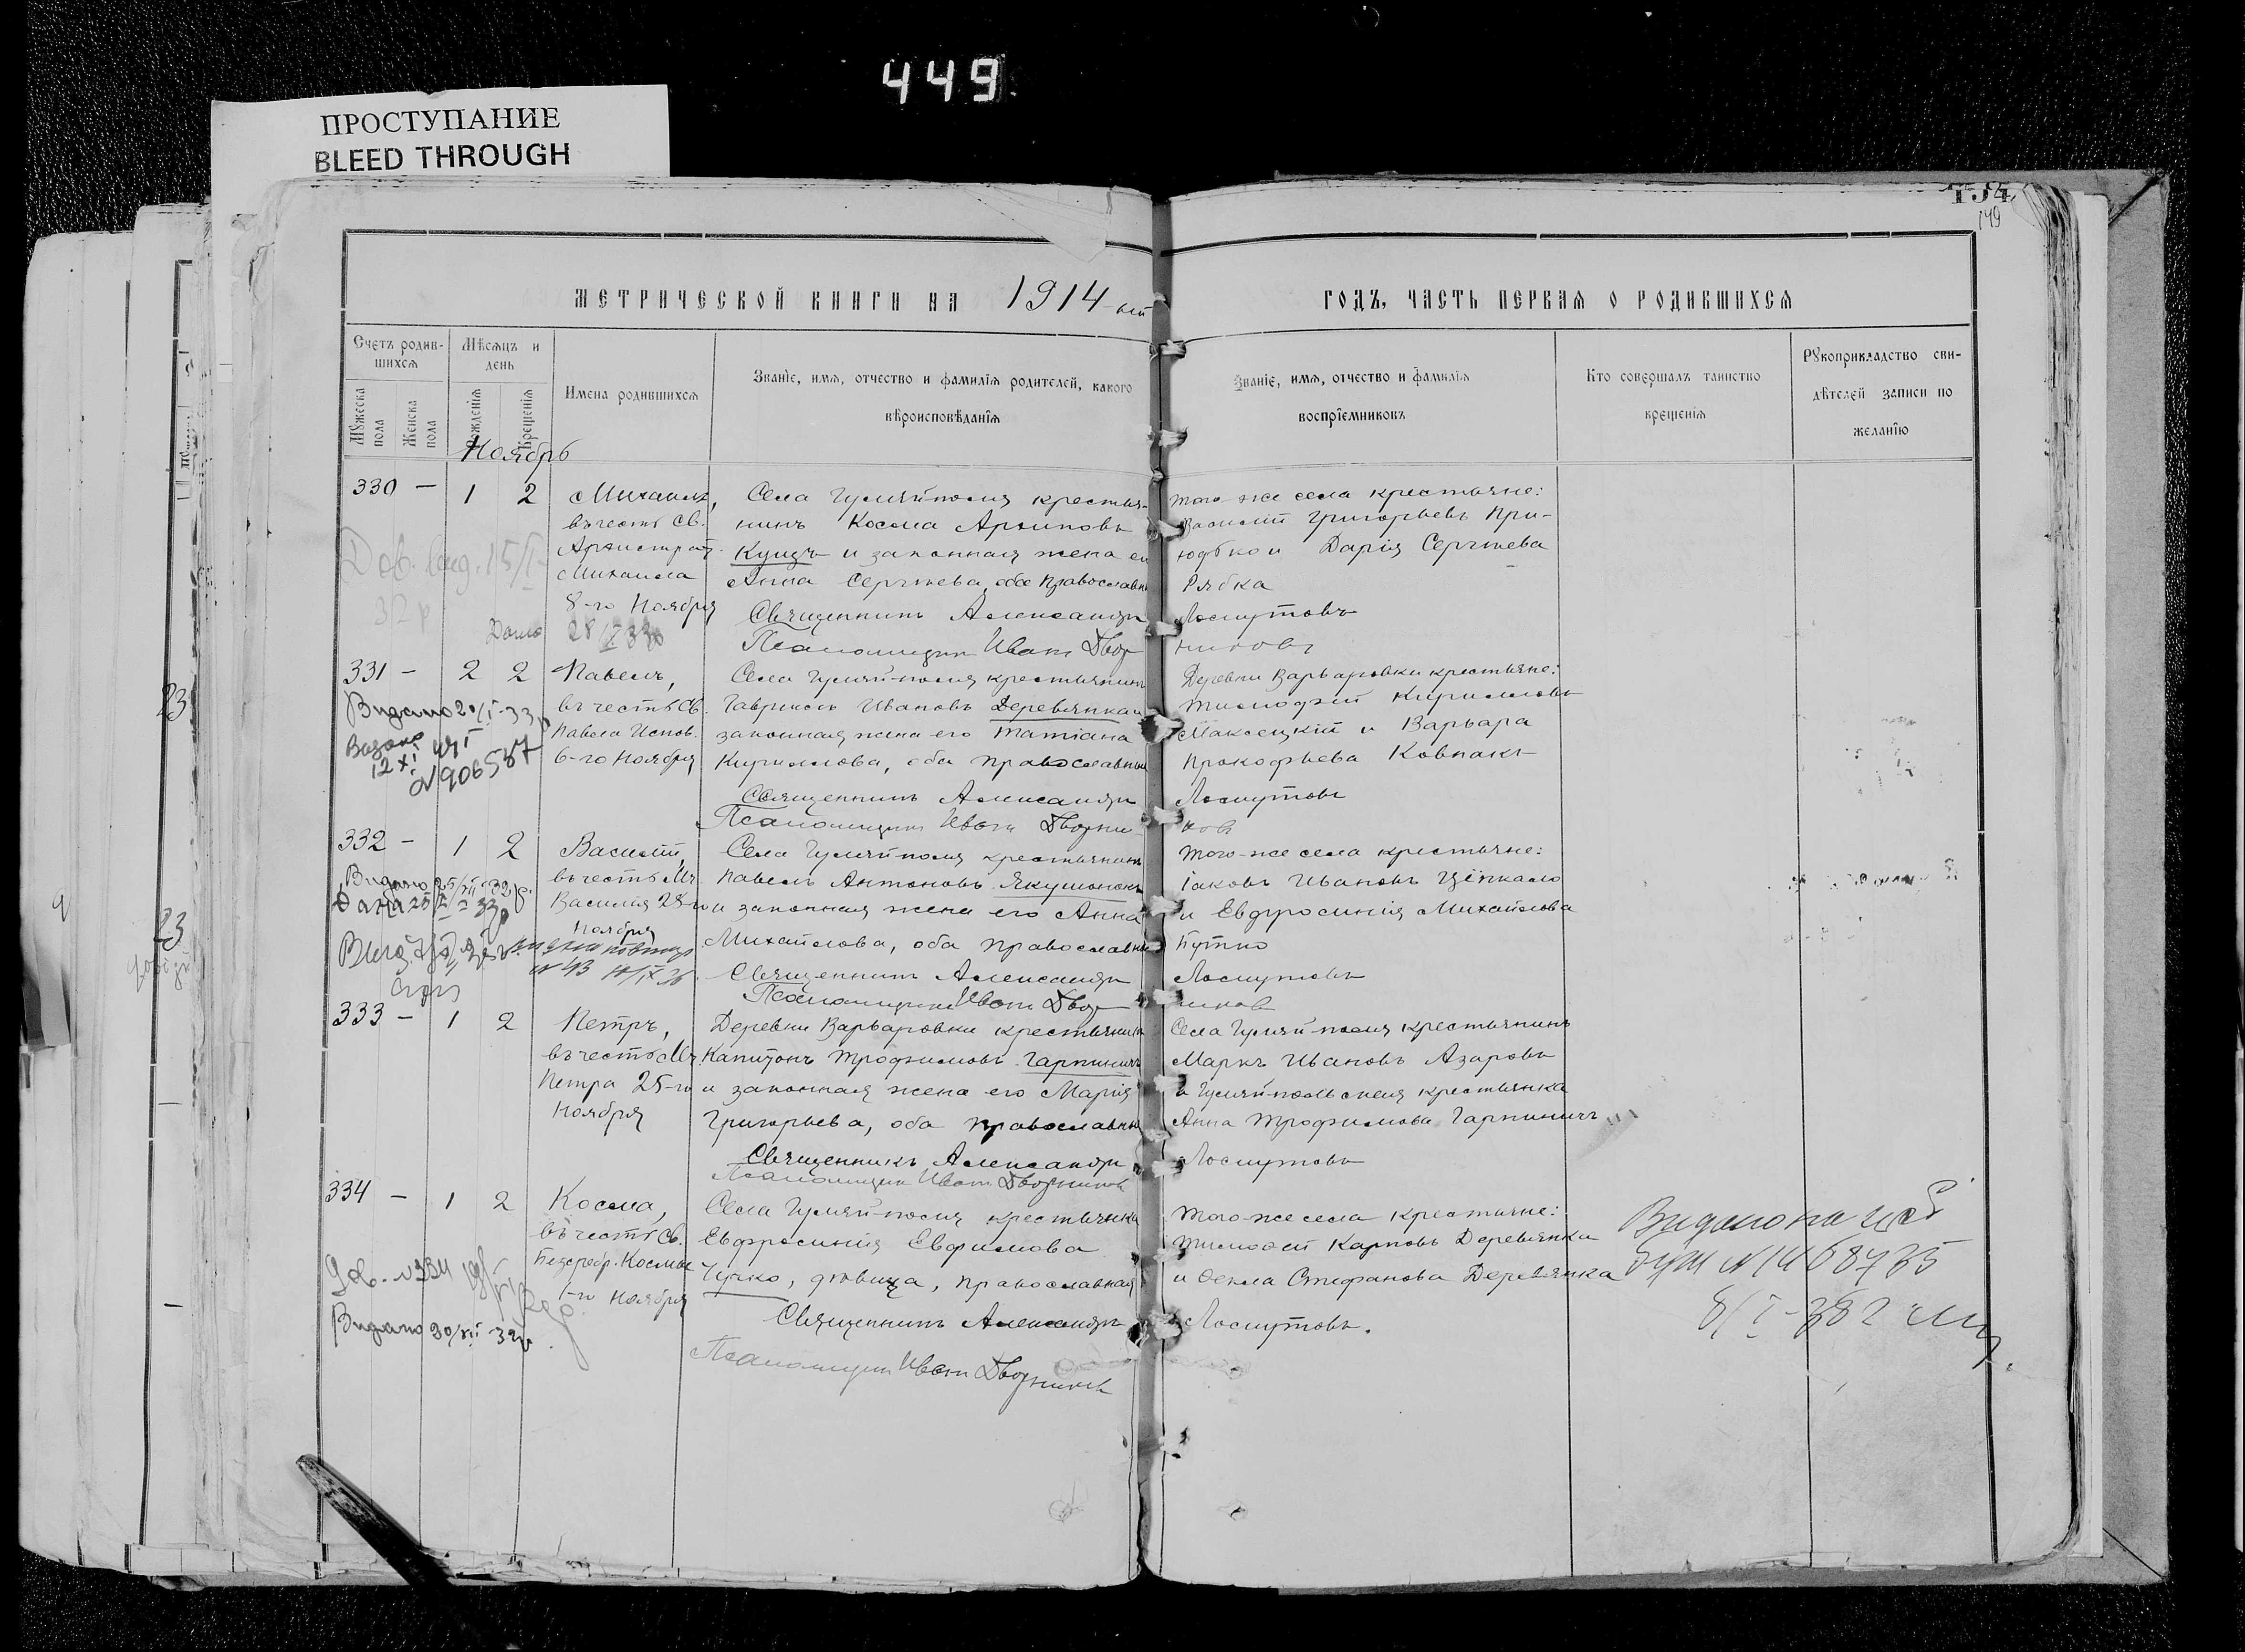 449
ПРОСТУПАНИЕ
BLEED THROUGH
154
149
МЕТРИЧЕСКОЙ КНИГИ НА 1914 ГОДЪ, ЧАСТЬ ПЕРВАЯ О РОДИВШИХСЯ
Счетъ родив-
шихся
Мужеска пола
Женска пола
Мѣсяцъ и
день
Рожденія
Крещенія
Имена родившихся
Званіе, имя, отчество и фамилія родителей, какого
вѣроисповѣданія
Званіе, имя, отчество и фамилія
воспріемниковъ
Кто совершалъ таинство
крещенія
Рукоприкладство сви-
дѣтелей записи по
желанію
Ноябрь
330 — 1 2
Михаилъ,
въ честь Св.
Архистрат.
Михаила
8-го Ноября
Села Гуляй-поля крестья-
нинъ Косма Архиповъ
Куцъ и законная жена его
Анна Сергѣева, оба православны
того-же села крестьяне:
Василій Григорьевъ При-
ходько и Дарія Сергѣева
Рябка
Священникъ Александръ Лоскутовъ
Псаломщикъ Иванъ Дворниковъ
331 — 2 2
Видано 20/I-33
N 906587
Павелъ,
въ честь Св.
Павла Испов.
6-го Ноября
Села Гуляй-поля крестьянинъ
Гавриилъ Ивановъ Деревянка и
законная жена его Татіана
Кириллова, оба православны
Деревни Варваровки крестьяне:
Тимофей Кирилловъ
Маклецкій и Варвара
Прокофьева Ковпакъ
Священникъ Александръ Лоскутовъ
Псаломщикъ Иванъ Дворниковъ
332 — 1 2
Видано 25/XII-32 р.
Василій,
въ честь Мч.
Василія 28-го
Ноября
Села Гуляй-поля крестьянинъ
Павелъ Антоновъ Якушонокъ
и законная жена его Анна
Михайлова, оба православны
того-же села крестьяне:
Іаковъ Ивановъ Цѣпкало
и Евфросинія Михайлова
Бутко
Священникъ Александръ Лоскутовъ
Псаломщикъ Иванъ Дворниковъ
333 — 1 2
Петръ,
въ честь Мч.
Петра 25-го
Ноября
Деревни Варваровки крестьянинъ
Капитонъ Трофимовъ Гарпиничъ
и законная жена его Марія
Григорьева, оба православны
Села Гуляй-поля крестьянинъ
Маркъ Ивановъ Азаровъ
и Гуляй-польская крестьянка
Анна Трофимова Гарпиничъ
Священникъ Александръ Лоскутовъ
Псаломщикъ Иванъ Дворниковъ
334 — 1 2
Видано 20/XII-32р
Косма,
въ честь Св.
Безсребр. Космы
1-го Ноября
Села Гуляй-поля крестьянка
Евфросинія Евфимова
Чучко, дѣвица, православная
того-же села крестьяне:
Тимофей Карповъ Деревянка
и Ѳекла Стефанова Деревянка
Священникъ Александръ Лоскутовъ.
Псаломщикъ Иванъ Дворниковъ